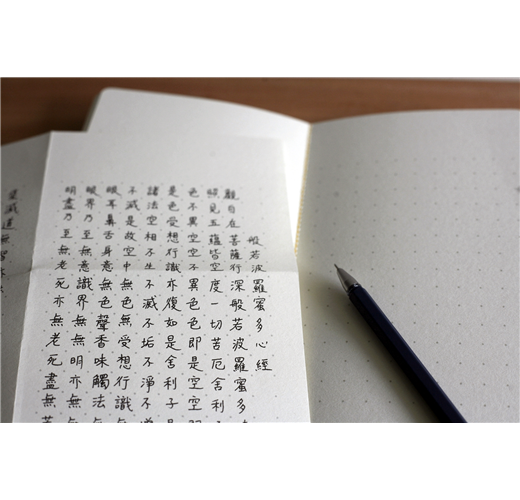 般若波羅蜜多心經
觀自在菩薩行深般若波羅蜜多
照見五蘊皆空度一切苦厄舍利子
色不異空空不異色色即是空空
是色受想行識亦復如是舍利子是
諸法空相不生不滅不垢不淨不
不減是故空中無色無受想行識無
眼耳鼻舌身意無色聲香味觸法無
眼界乃至無意識界無無明亦無無
明盡乃至無老死亦無老死盡無苦
集滅道無智亦